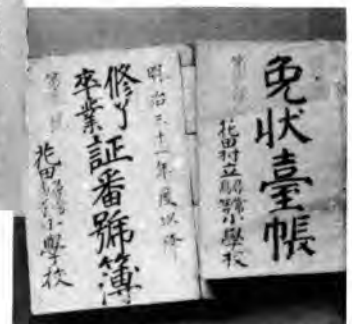 免状臺帳
花田村立
小學校
明治三十一年度以降
修了
卒業
証番號簿
花田
小學校